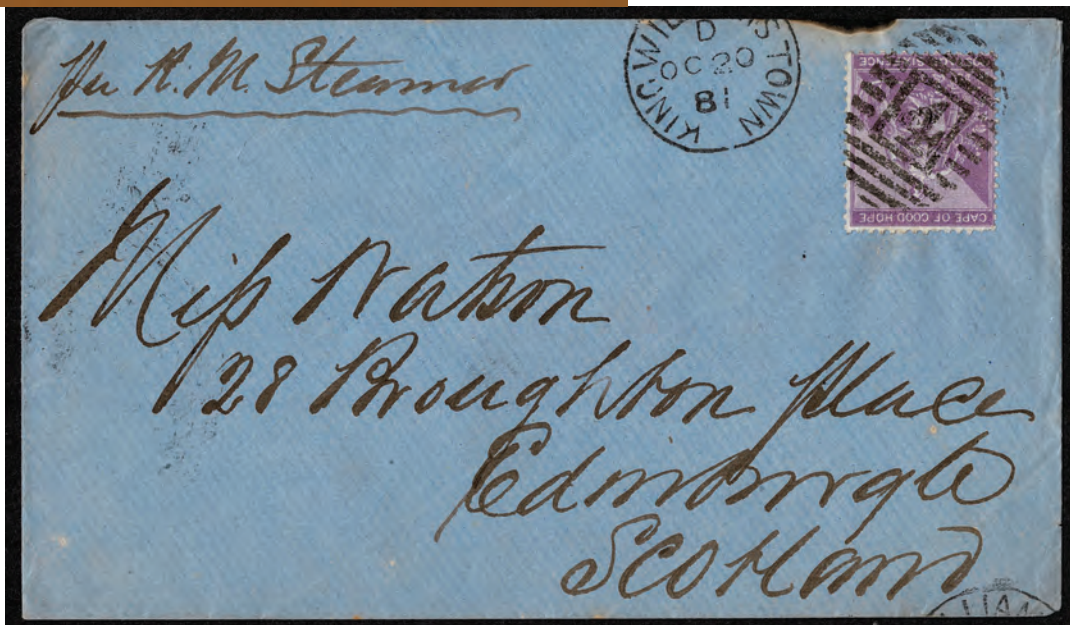 per R. M. Steamer
KING WILL MSTOWN
D
OC 20
81
POSTAGE SIX PENCE
CAPE OF GOOD HOPE
Miss Watson
28 Broughton place
Edinburgh
Scotland
LLIAM